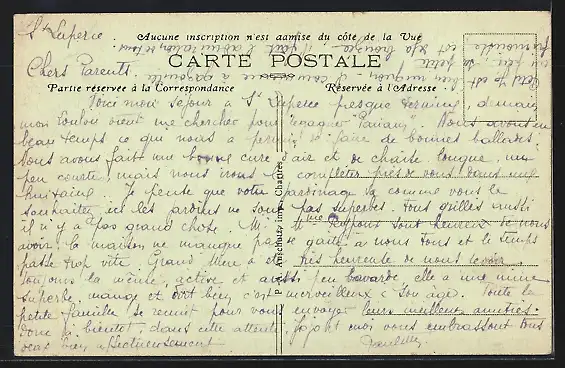 St Luperce.
Aucune inscription n'est admise du côté de la Vue
Chers Parents
CARTE POSTALE
Partie réservée à la Correspondance
Réservée à l'Adresse
Voici mon séjour à St Luperce presque terminé demain
mon Loulou vient me chercher pour gagner Nous avons eu
beau temps ce qui nous a permis de faire de bonnes ballades.
Nous avons fait une bonne cure d'air et de chaise longue, un
peu courte, mais nous irons la compléter près de vous dans une
huitaine. Je pense que votre jardinage va comme vous le
souhaitez ici les jardins ne sont pas superbes. tous grillés aussi
il n'y a pas grand chose. M. et Mme sont heureux de nous
avoir la maison ne manque pas de gaité à nous tous et le temps
passe trop vite. Grand'Mère a été très heureuse de nous revoir,
toujours la même, active et aussi peu bavarde elle a une mine
superbe, mange et dort bien c'est merveilleux à son âge. Toute la
petite famille se réunit pour vous envoyer leurs meilleures amitiés.
Donc à bientôt; dans cette attente, et moi vous embrassons tous
deux bien affectueusement